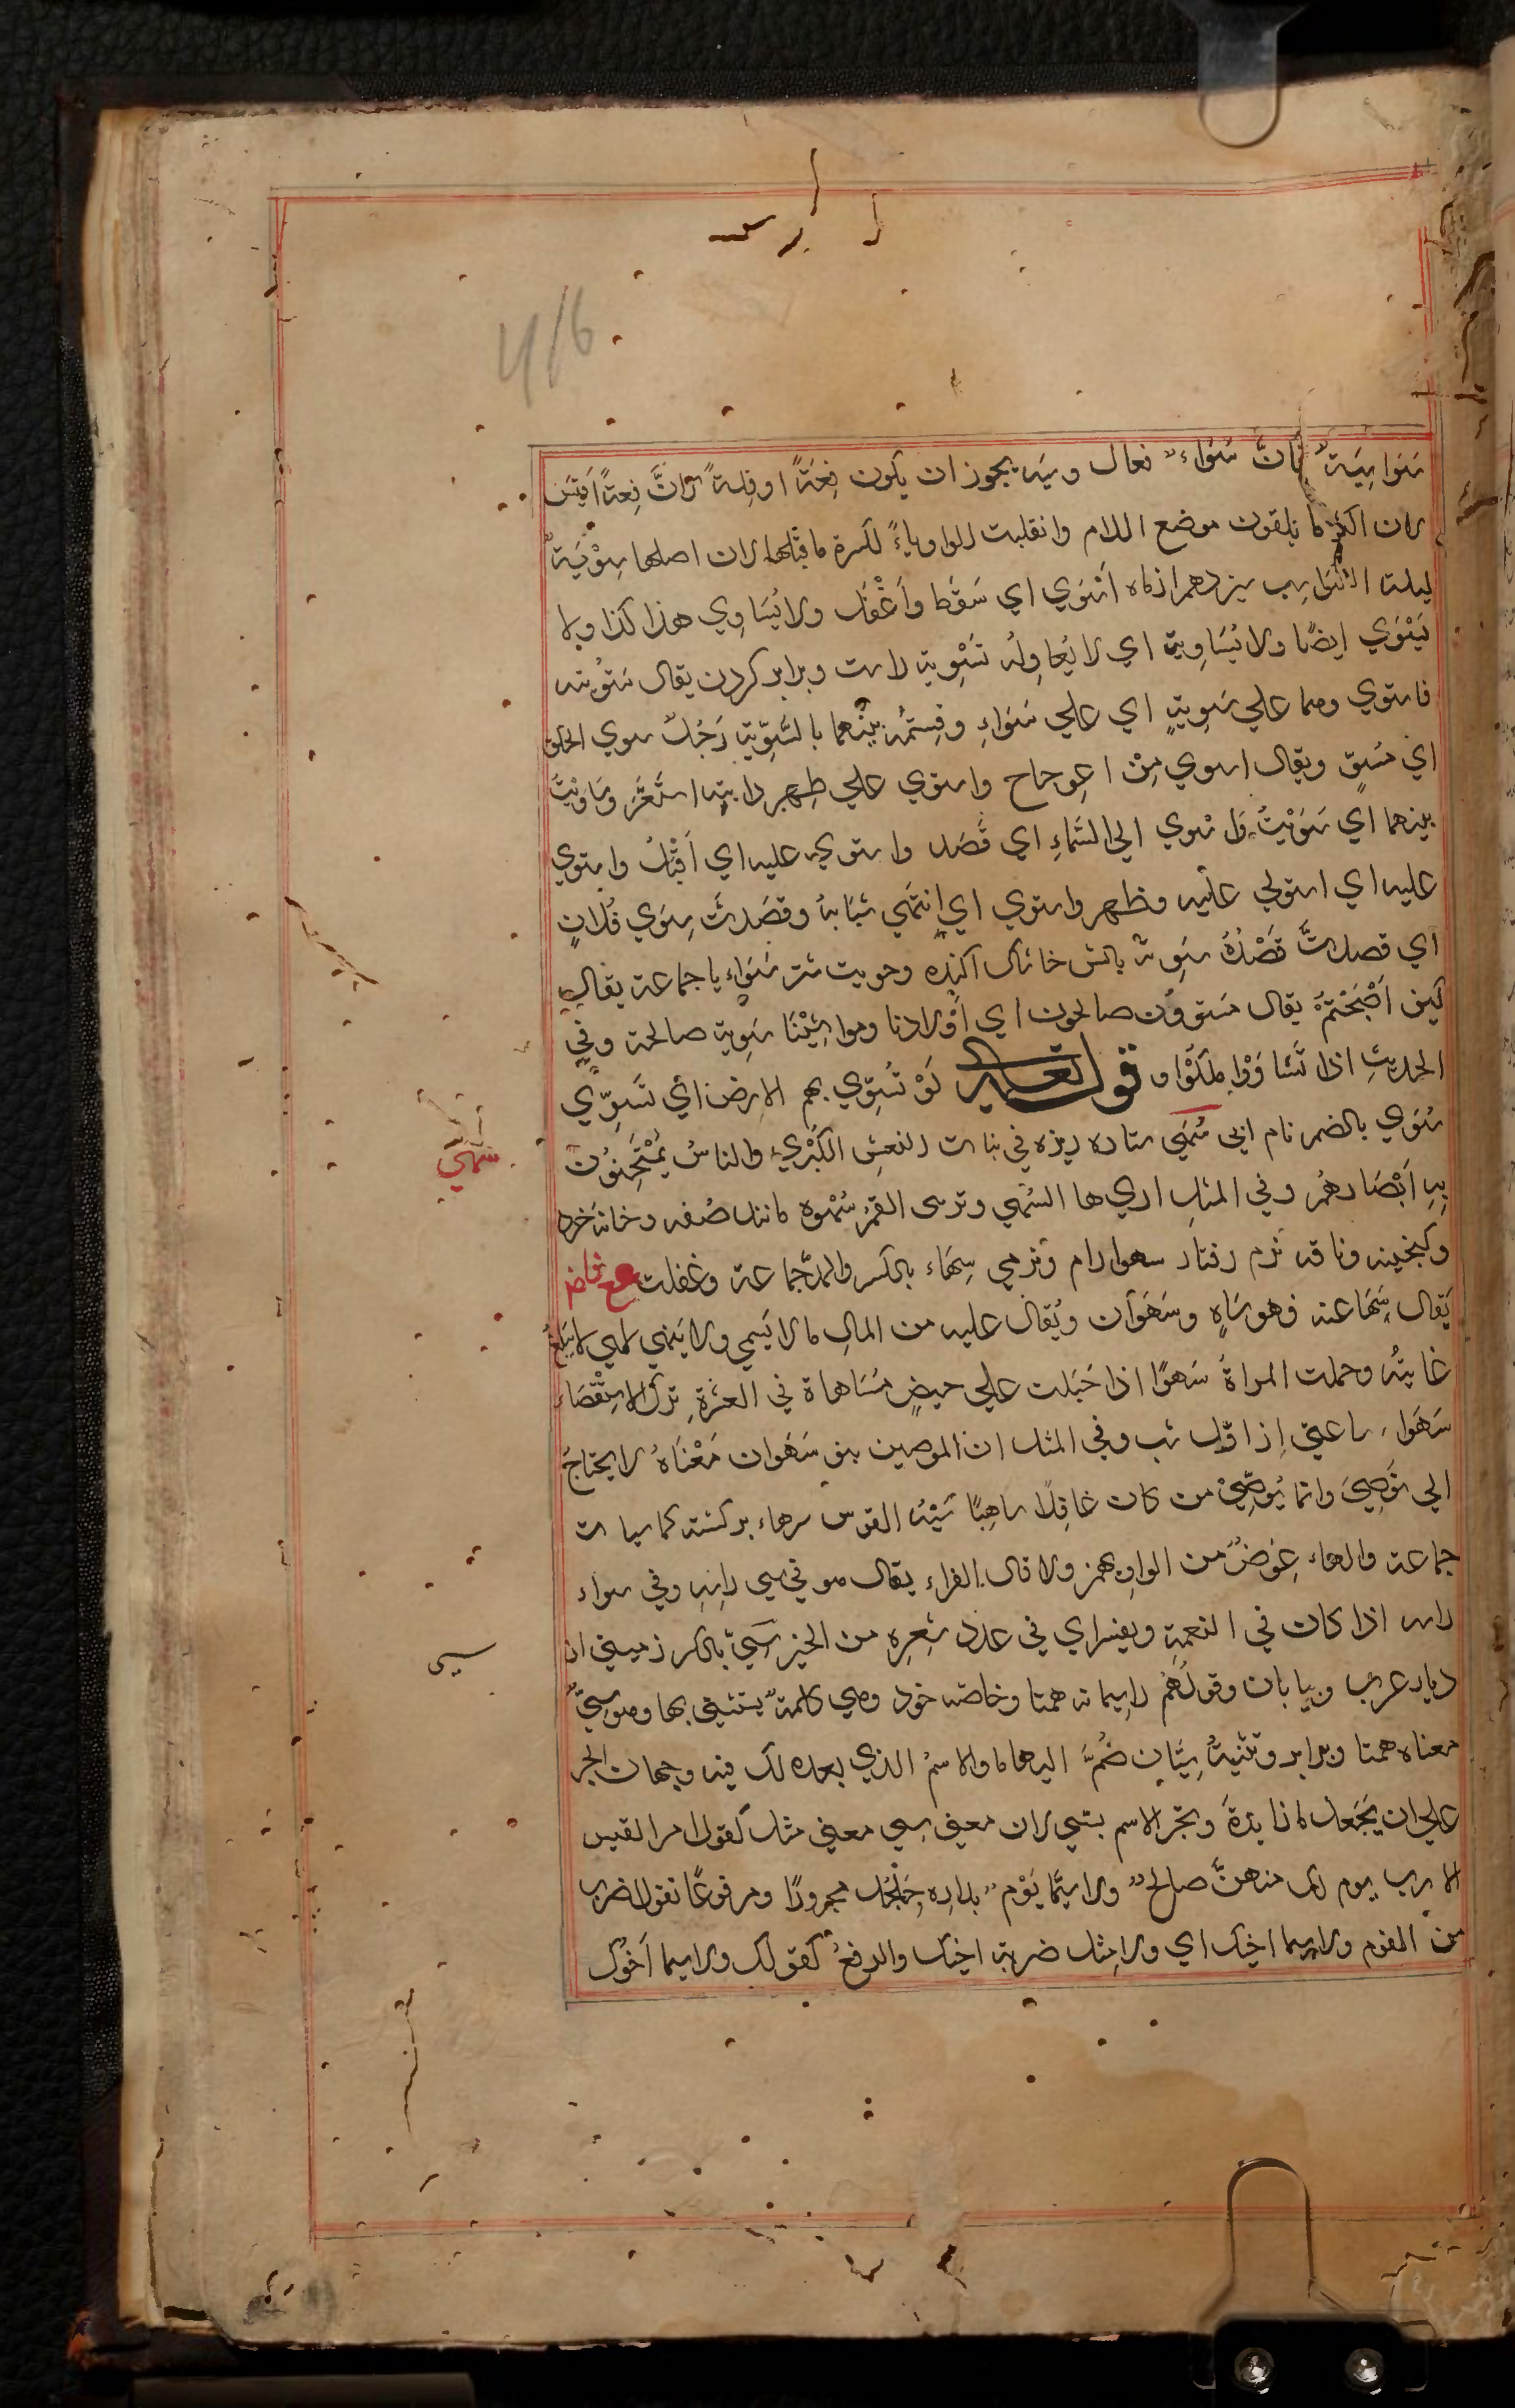 416
سَوَاسِيَةٌ فانَّ سَوَاءٌ فعال وسِيَه يجوز ان يكون فِعَةً او فِلةً لانَّ فِعةً اَقيَس
لان اكثر ما يلقون موضع اللام وانقلبت الواو ياءً لكسرة ما قبلها لان اصلها سِوْيَةٌ
ليلة السَّوَاء شب سيزدهم از ماه اَسْوَي اي سَقَط واَغْفَل ولا يُسَاوِي هذا كذا ولا
يَسْوَي ايضًا ولا يُسَاوِيه اي لا يُعادِلُه تَسْوِية راست وبرابر كردن يقال سَوَّيته
فاستوي وهما علي سَوِيةٍ اي علي سَوَاءٍ وقسمتُه بينهما بالسَّوِيّة رَجُلٌ سوي الخلق
اي مُسْتوٍ ويقال استوي مِنْ اعوجاج واستوي علي ظهر دابته استَقَرّ وسَاوَيْتُ
بينهما اي سَوَيْتُ واستوي الي السَّماءِ اي قَصَد واستوي عليه اي اَقْبَلَ واستوي
عليه اي استولي عليه وظهر واستوي اي اِنتَهي شَبَابُه وقصَدتُ سِوَي فُلانٍ
اي قصدتُ قَصْدَهُ سَوِيّة بالش خاشاك اكنده وحويت شتر سَوَايا جماعة يقال
كيف اَصْبَحْتُمْ يقال مستوُون صالحون اي اَوْلادنا ومواشِيْنَا سَوِية صالحة وفي
الحديثِ اذا تَسَاوَوْا هَلَكُوْا و قوله تعالي لَوْ تُسَوّي بهم الارضُ اي تَسَوّي
سُوَي بالضم نام ابي سُهَي ستاره ريزه في بنات النعش الكُبْري والناسُ يَمْتَحِنُوْنَ
بهِ اَبْصَارهُم وفي المثلِ اريها السُهي وتريني القمَرَ سُهْوه مانند صُفه وخانه خرد
وكنجينه وناقه نرم رفتار سهوارام ونرمي سِهَاء بالكسر والمد جماعة وغفلت ع فاض
يَقال سَهَا عنه فهو سَاهٍ وسَهَوَان ويُقال عليه من المالِ ما لا يُسهي ولا يُنهي اي لا يَبلغُ
غايتُه وحملت المراةُ سَهوًا اذا حَبَلت علي حيضٍ مُسَاهاة في العِشْرةِ ترك الاسْتِقْصَاء
سَهَواء ساعتي از اوّل شب وفي المثل ان الموصين بنو سَهَوان مَعْنَاهُ لا يحتاج
الي تُوَصِيَ وانما يُوَصِّيْ من كان غافلًا ساهِيًا سِيَةُ القوس سرهاء بركشته كمان سيات
جماعة والهاء عِوَضٌ من الواو يهمز ولا قال الفراء يقال هو في سِي راسِهِ وفي سواء
راسه اذا كان في النعمةِ ويفسراي في عدد شعرِه من الخير سِيّ بالكسر زميني از
ديار عرب وبيابان وقولُهُم لاسِيما نه همتا وخاصه خود وهي كلمةٌ يستثني بها وهو سِيٌّ
معناه همتا وبرابر وتثنيةُ سِيَّانِ ضُمَّ اليها ما والاسمُ الذي بعده لك فيه وجهان الجر
علي ان يَجْعل ما زايدةً وتجر الاسم بسي لان معني سِي معني مثل كقول امرا القيس
الا رب يوم لك منهنَّ صالحٍ ولا سِيَّما يَوْم بدارة جُلْجُل مجرورًا ومرفوعًا تقول اضرب
من القوم ولاسيما اخيك اي ولا مِثل ضربة اخيك والرفعُ كقولك ولاسيما اَخُوك
سهي
سيي